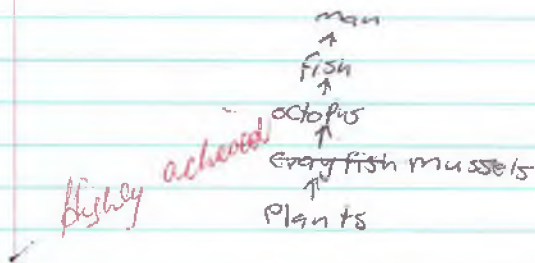 man
↑
Fish
↑
octopus
↑
~~Crayfish~~ mussels
↑
Plants
Highly achieved